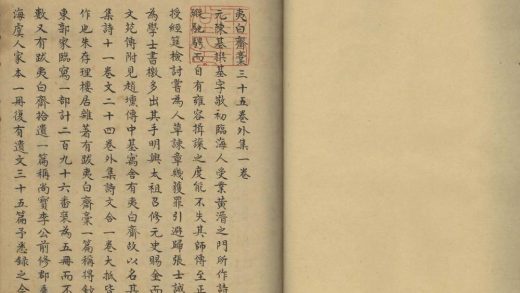 夷白齋藁三十五卷外集一卷
元陳基撰基字敬初臨海人受業黃溍之門所作詩
縱馳騁而自有雍容揖讓之度能不失其師傳至正
授經筵檢討嘗為人草諫章幾獲罪引避歸張士誠
為學士書檄多出其手明興太祖召修元史賜金而
文苑傳附見趙壎傳中基寓舍有夷白齋故以名其
集詩十一卷文二十四卷外集詩文合一卷大抵皆
作也朱存理樓居雜著有跋夷白齋藁一篇稱得鈔
東郭家臨寫一部計二百九十六番裝為五冊而不
數又有跋夷白齋拾遺一篇稱尚寶李公前修郡
海虞人家本一冊復有遺文三十五篇予悉錄之今